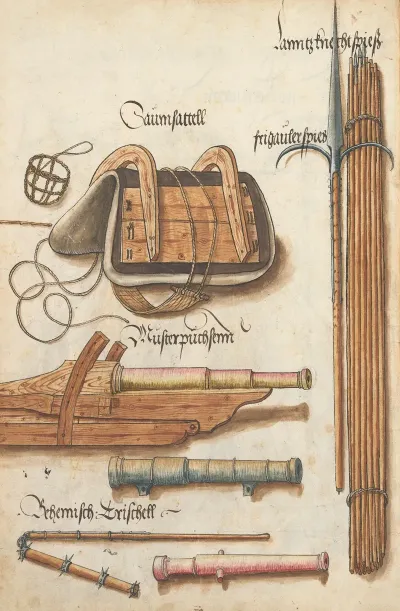 Lanntzknechtspieß
Saumsattell
frigaulerspies
Musterpuchsenn
Behemisch: Drischell